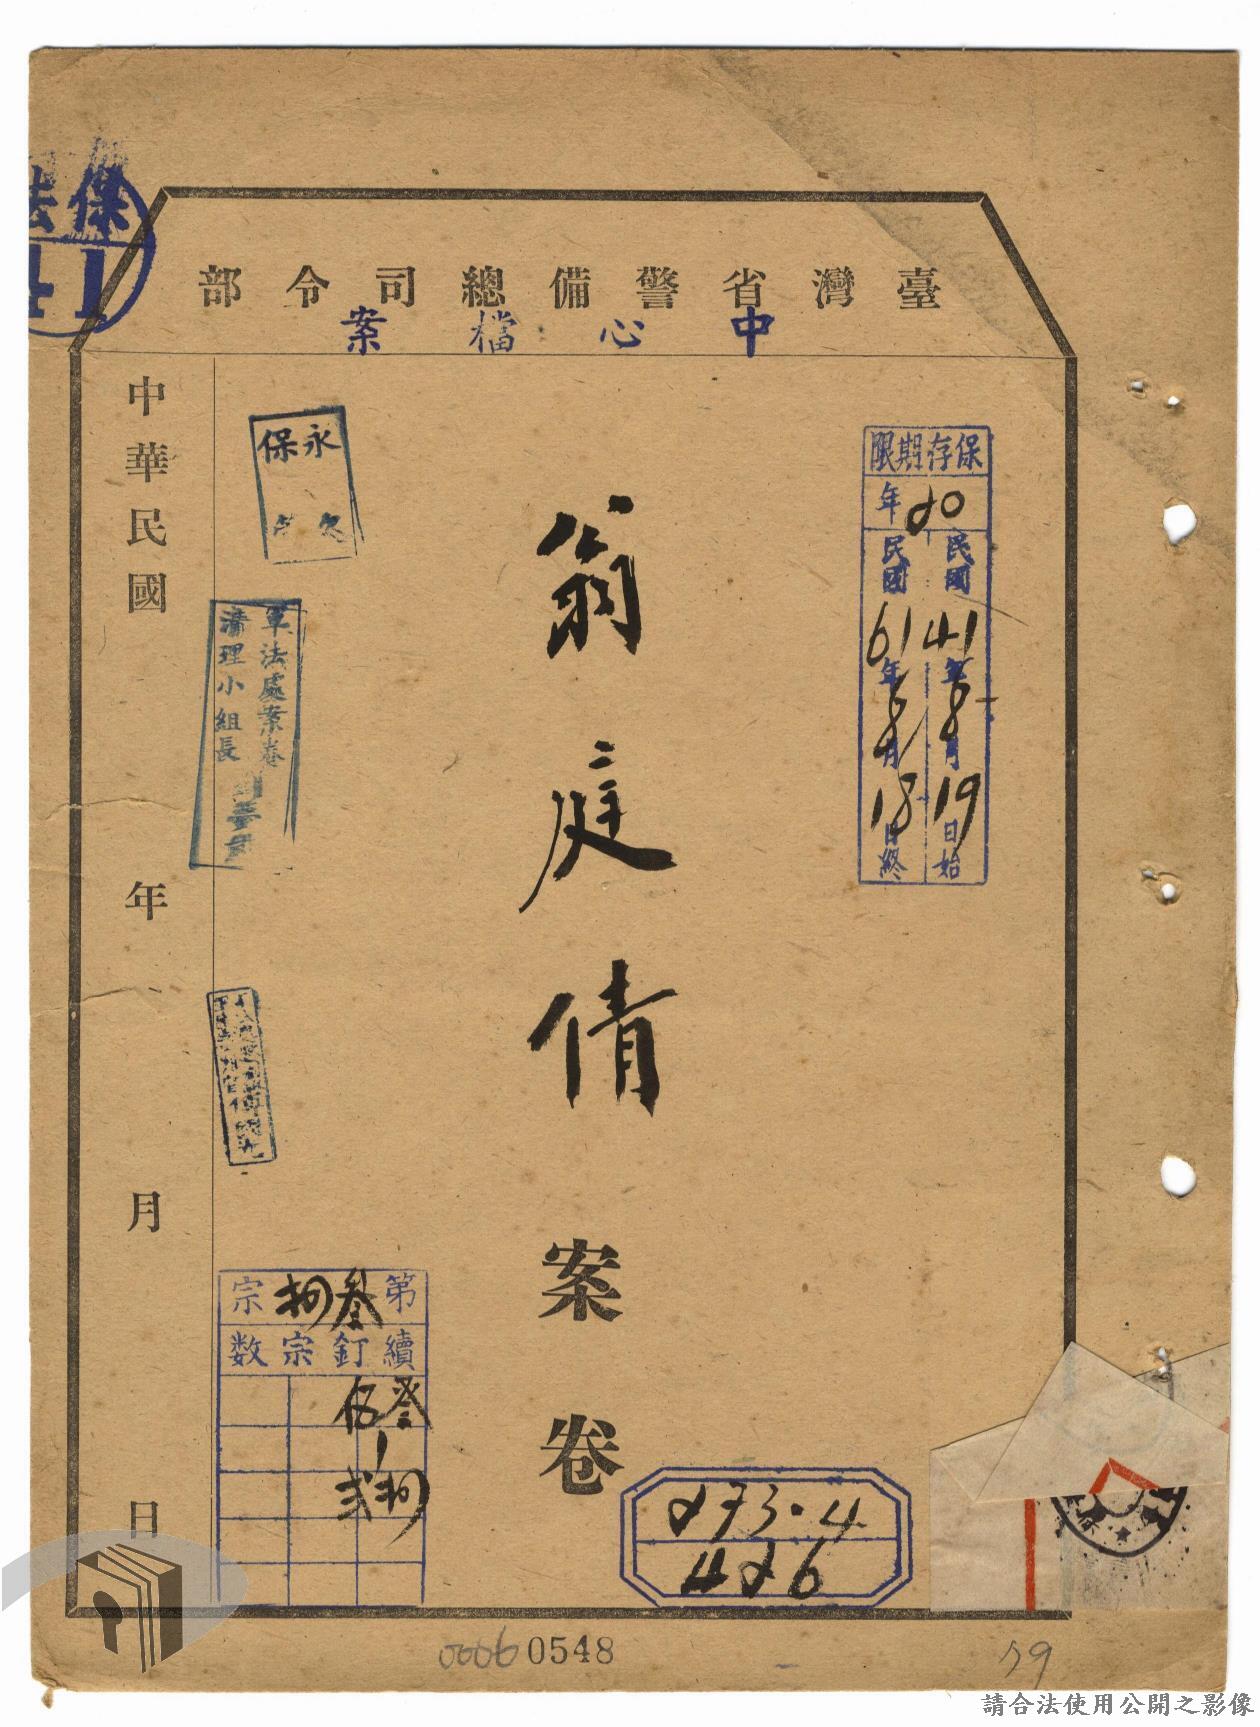 保法
41
臺灣省警備總司令部
中心檔案
保存期限
20年
民國41年8月19日始
民國61年8月18日終
翁庭倩案卷
永久
保
軍法處案卷
清理小組長
中華民國 年 月 日
第叁捌宗
續釘宗数
叁伍
捌貳
273.4
426
0006 0548
79
請合法使用公開之影像